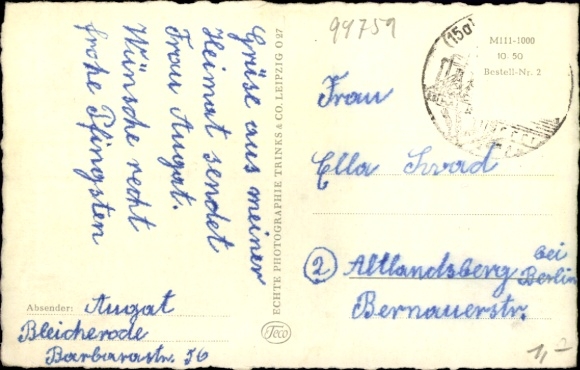 Grüse aus meiner
Heimat sendet
Frau Augat.
Wünsche recht
frohe Pfingsten
Absender: Augat
Bleicherode
Barbarastr. 56
ECHTE PHOTOGRAPHIE TRINKS & CO. LEIPZIG O 27
Teco
94759
(15a)
M111-1000
10 50
Bestell-Nr. 2
Frau
Ella
② Altlandsberg bei Berlin
Bernauerstr.
1,-